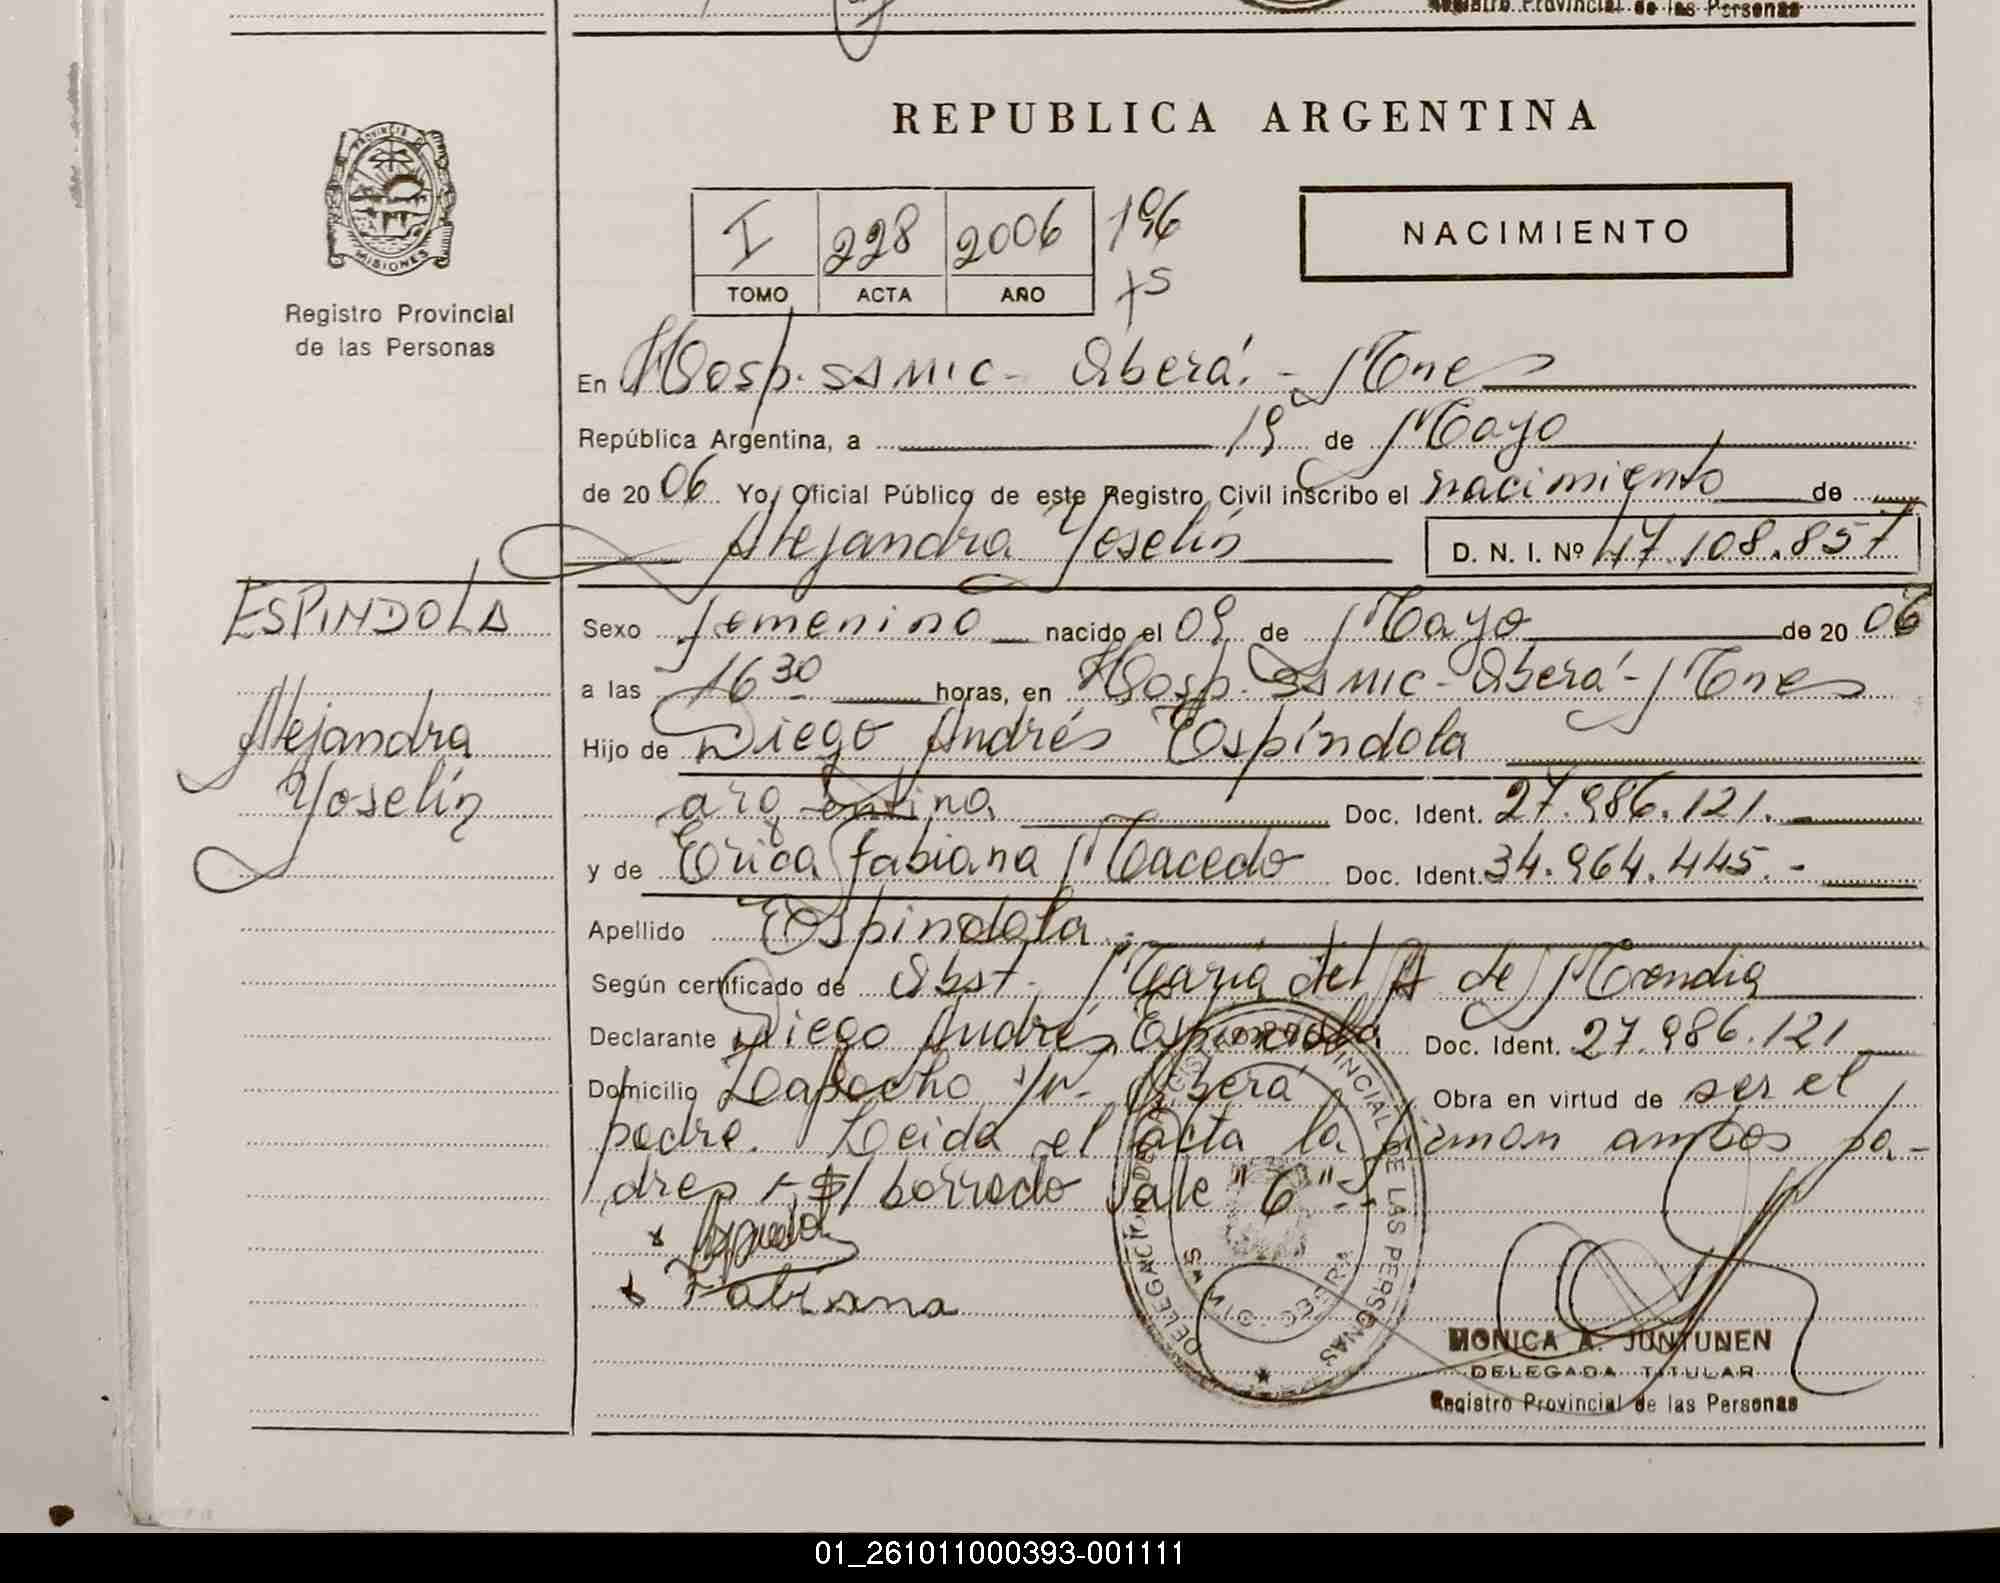 Registro Provincial de las Personas
PROVINCIA DE
MISIONES
Registro Provincial
de las Personas
REPUBLICA ARGENTINA
I 228 2006 196
TOMO ACTA AÑO
NACIMIENTO
En Hosp. SAMIC - Oberá. - Mnes
República Argentina, a 19 de Mayo
de 20 06 Yo, Oficial Público de este Registro Civil inscribo el nacimiento de
Alejandra Yoselín D. N. I. Nº 47.108.857
ESPINDOLA
Alejandra
Yoselín
Sexo femenino nacido el 09 de Mayo de 20 06
a las 16 30 horas, en Hosp. SAMIC - Oberá - Mnes
Hijo de Diego Andrés Espíndola
argentina Doc. Ident. 27.986.121.-
y de Erica Fabiana Macedo Doc. Ident. 34.964.445.-
Apellido Espíndola.-
Según certificado de Obst. María del A de Mendia
Declarante Diego Andrés Espíndola Doc. Ident. 27.986.121
Domicilio Lapacho s/n - Oberá Obra en virtud de ser el
padre. Leida el acta la firman ambos pa-
dres.- S/ borrado vale "6".-
Fabiana
DELEGACIÓN REGISTRO PROVINCIAL DE LAS PERSONAS
OBERA
MONICA A. JUNTUNEN
DELEGADA TITULAR
Registro Provincial de las Personas
01_261011000393-001111